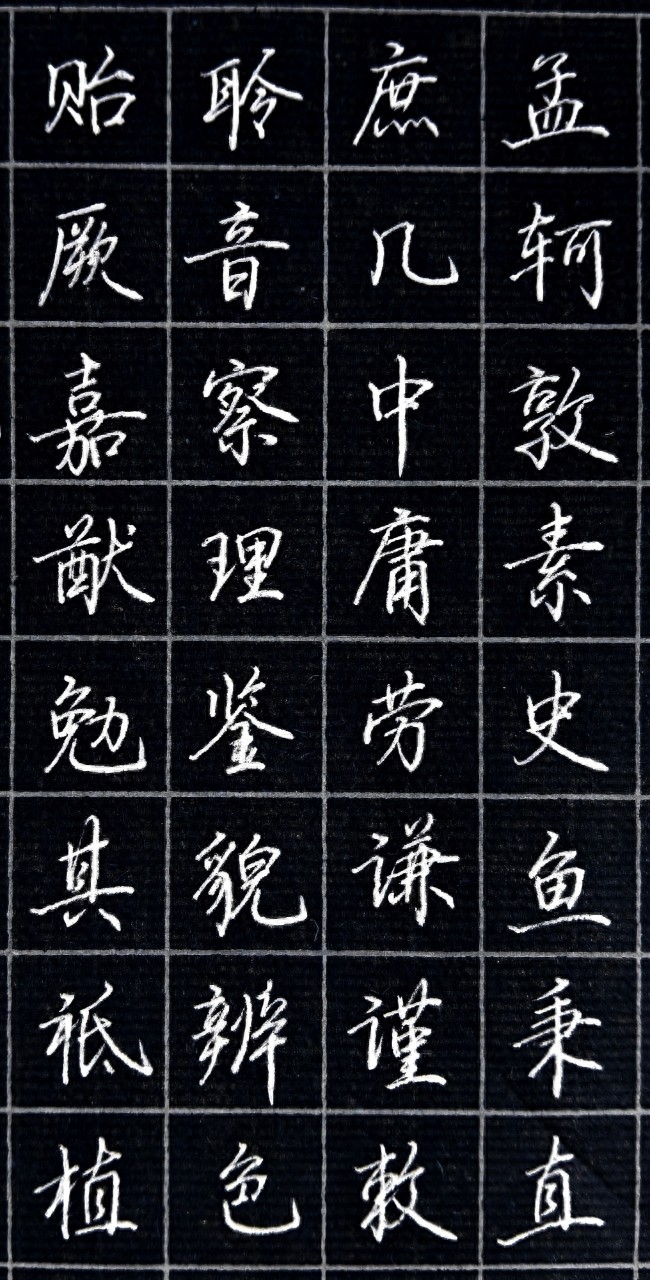 孟轲敦素史鱼秉直
庶几中庸劳谦谨敕
聆音察理鉴貌辨色
贻厥嘉猷勉其祗植